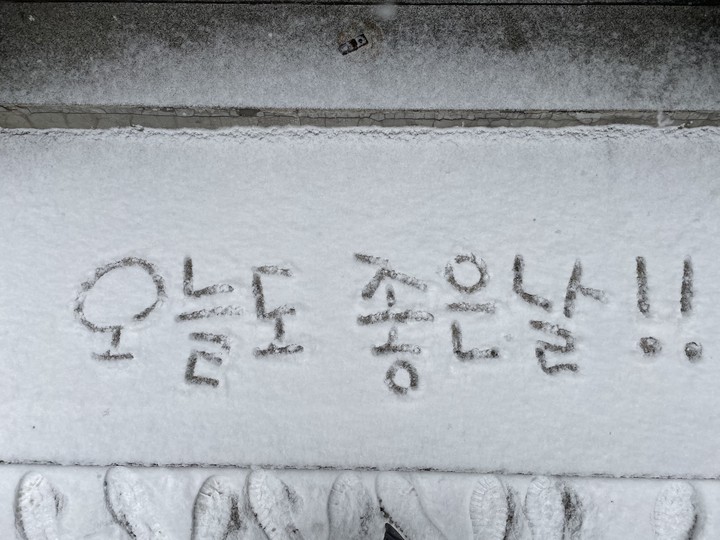 오늘도 좋은날!!